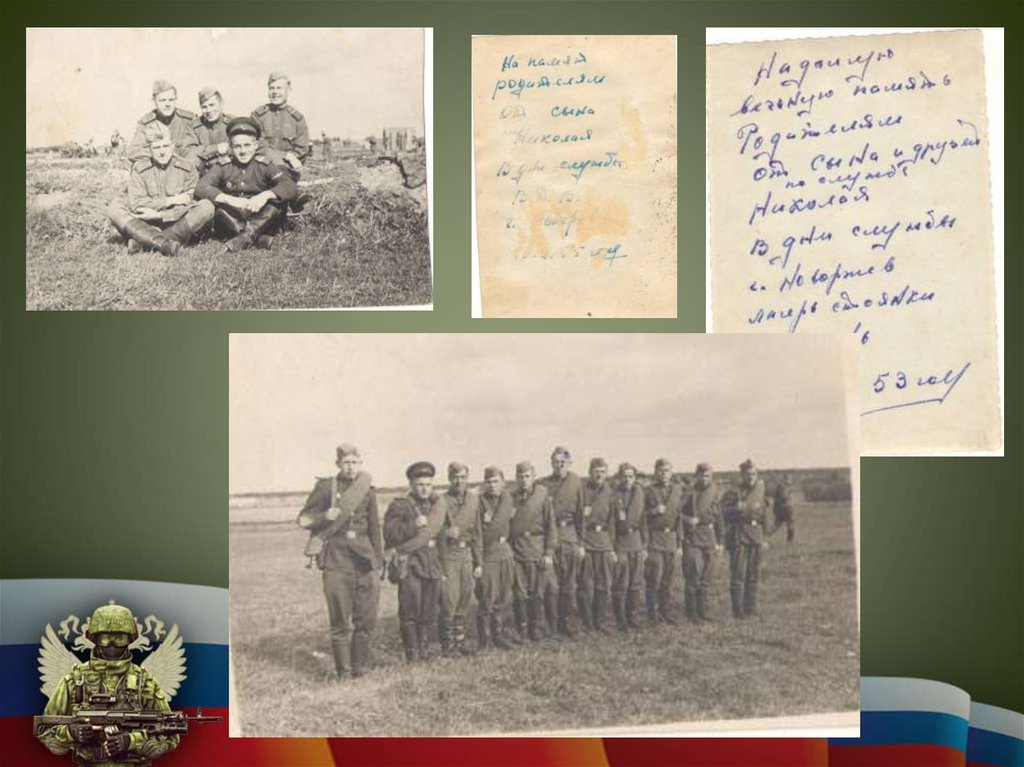 На памят
родителям
От сына
Николая
В дни службы
В. Д. В.
г.
На долгую
вечьную память
Родителям
От сына и друзей
по службе
Николая
В дни службы
г. Новоржев
лагерь стоянки
53 год